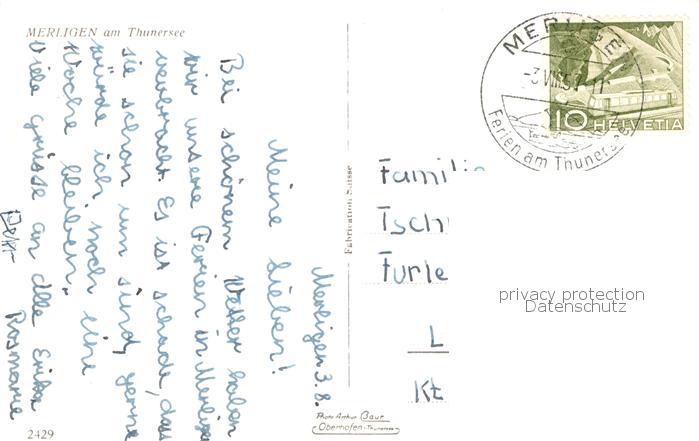 MERLIGEN am Thunersee
Merligen 3.8.
Meine Lieben!
Bei schönem Wetter haben
wir unsere Ferien in Merligen
verbracht. Es ist schade, das
sie schon um sind, gerne
würde ich noch eine
Woche bleiben.
Viele grüsse an alle Erika
Rosmarie
2429
Fabrication Suisse
Photo Arthur Baur
Oberhofen-Thunersee
MERLIGEN
-3.VIII.51-11
Ferien am Thunersee
10 HELVETIA
Famili
Tsch
Furle
L
Kt
privacy protection
Datenschutz